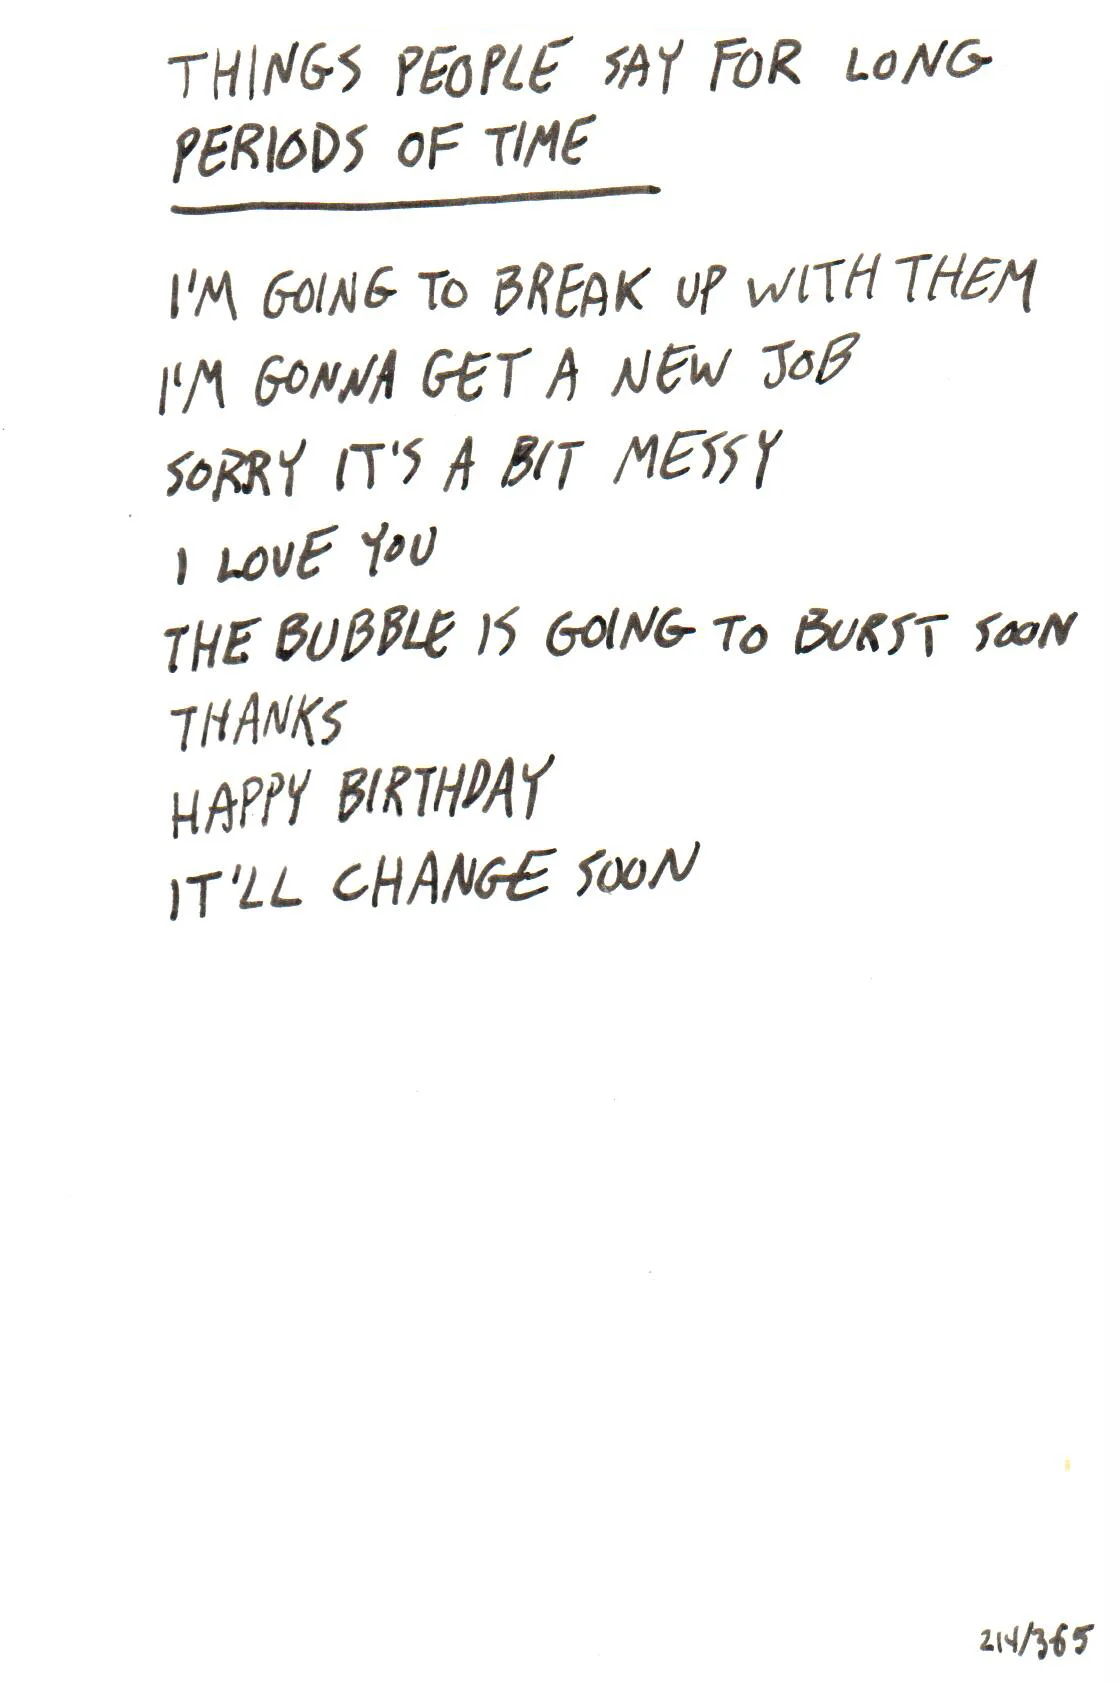 THINGS PEOPLE SAY FOR LONG
PERIODS OF TIME
I'M GOING TO BREAK UP WITH THEM
I'M GONNA GET A NEW JOB
SORRY IT'S A BIT MESSY
I LOVE YOU
THE BUBBLE IS GOING TO BURST SOON
THANKS
HAPPY BIRTHDAY
IT'LL CHANGE SOON
214/365